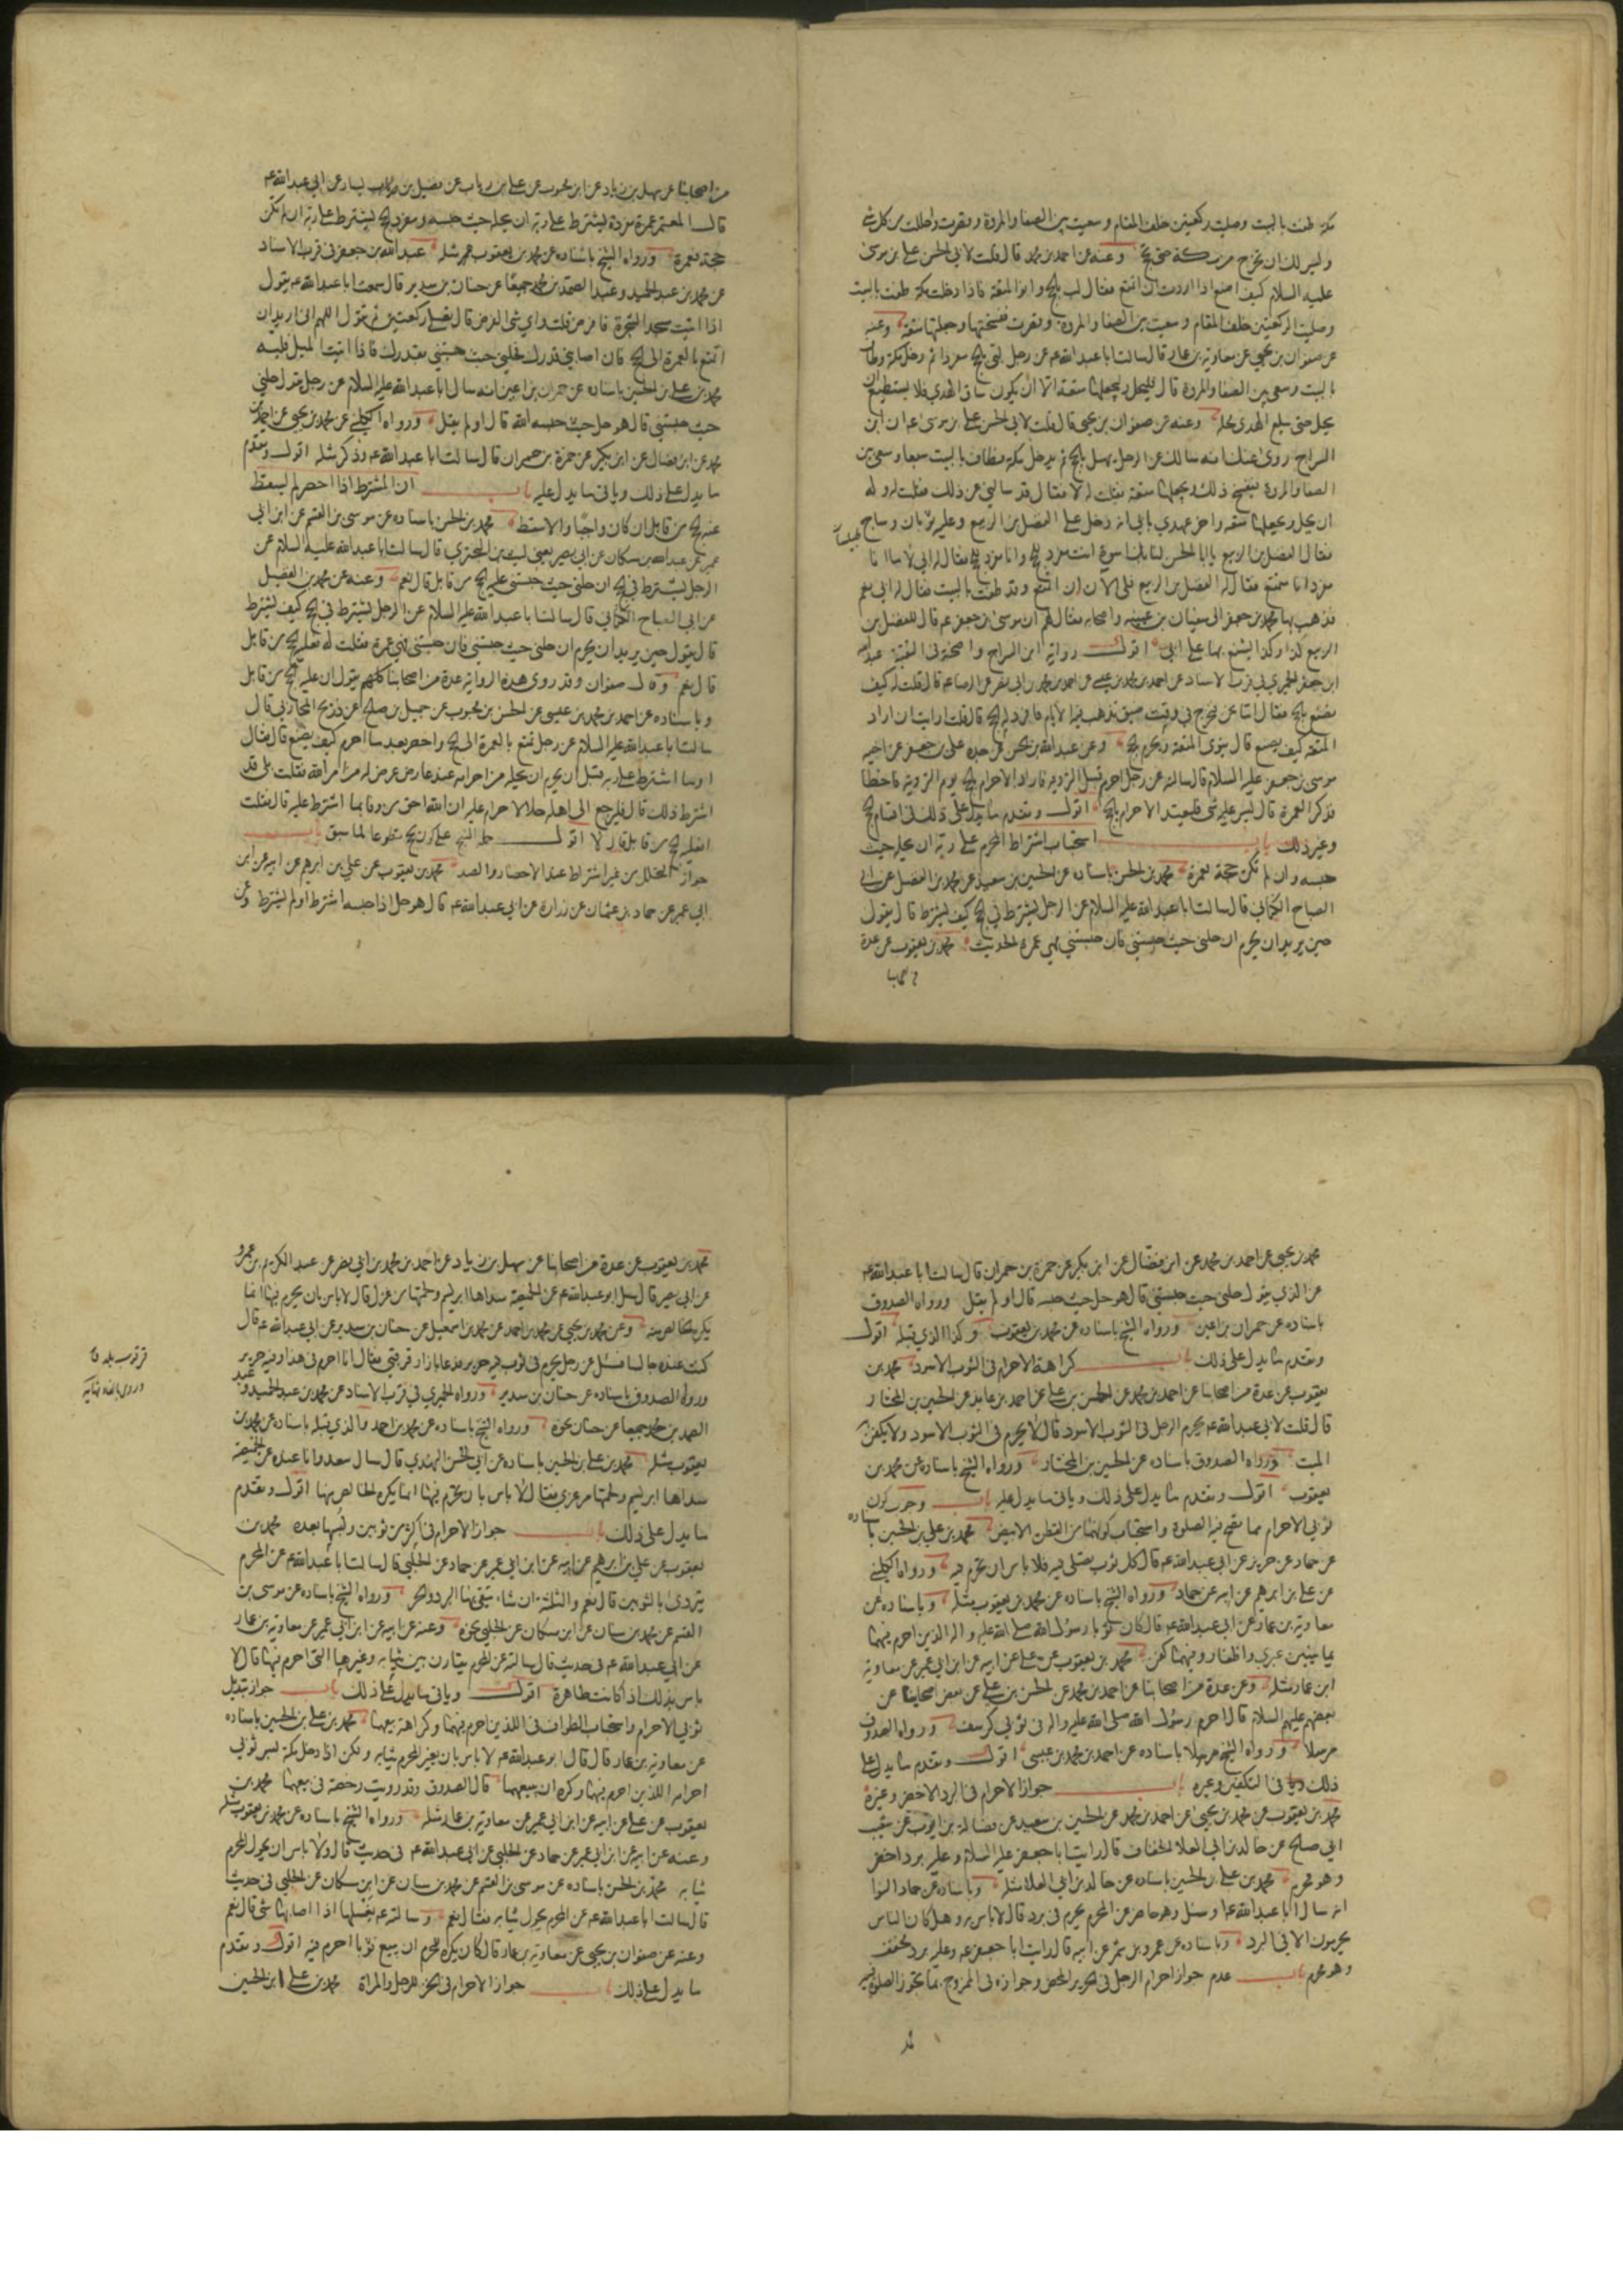 مكة طفت بالبيت وصليت ركعتين خلف المقام وسعيت بين الصفا والمروة وقصرت واحللت من كل شئ
وليس لك ان تخرج من مكة حتى تحج وعنه عن احمد بن محمد قال قلت لابي الحسن علي بن موسى
عليه السلام كيف اصنع اذا اردت ان اتمتع فقال لب بالحج وانو المتعة فاذا دخلت مكة طفت بالبيت
وصليت الركعتين خلف المقام وسعيت بين الصفا والمروة وقصرت ففسختها وجعلتها متعة وعنه
عن صفوان بن يحيى عن معاوية بن عمار قال سالت ابا عبدالله عم عن رجل لبى بالحج مفردا ثم دخل مكة وطاف
بالبيت وسعى بين الصفا والمروة قال فليحل وليجعلها متعة الا ان يكون ساق الهدي فلا يستطيع ان
يحل حتى يبلغ الهدي محله وعنه عن صفوان بن يحيى قال قلت لابي الحسن علي بن موسى ع ان ابن
السراج روى عنك انه سالك عن الرجل يهل بالحج ثم يدخل مكة فطاف بالبيت سبعا وسعى بين
الصفا والمروة فيفسخ ذلك ويجعلها متعة فقلت له لا فقال قد سالني عن ذلك فقلت له لا وله
ان يحل ويجعلها متعة واخر عهدي بابي انه دخل على الفضل بن الربيع وعليه ثوبان وساج
فقال الفضل بن الربيع يا ابا الحسن لنا بك اسوة انت مفرد للحج وانا مفرد للحج فقال له ابي لا ما انا
مفردا انا متمتع فقال له الفضل بن الربيع فلي الآن ان اتمتع وقد طفت بالبيت فقال له ابي نعم
فذهب بها محمد بن جعفر الى سفيان بن عيينه واصحابه فقال لهم ان موسى بن جعفر عم قال للفضل بن
الربيع كذا وكذا يشنع بها على ابي اقول رواية ابن السراج واضحة في التقية عبدالله
ابن جعفر الحميري في قرب الاسناد عن احمد بن محمد بن عيسى عن احمد بن محمد بن ابي نصر عن الرضا عم قال قلت له كيف
نصنع بالحج فقال اما نحن فنخرج في وقت ضيق تذهب فيه الايام فافرد له الحج قال قلت ارايت ان اراد
المتعة كيف يصنع قال ينوى المتعة ويحرم بالحج وعن عبدالله بن الحسن عن جده علي بن جعفر عن اخيه
موسى بن جعفر عليه السلام قال سالته عن رجل احرم قبل التروية فاراد الاحرام بالحج يوم التروية فاخطا
فذكر العمرة قال ليس عليه شئ فليعتد الاحرام بالحج اقول وتقدم ما يدل على ذلك في اقسام الحج
وغير ذلك باب استحباب اشتراط المحرم على ربه ان يحله حيث
حبسه وان لم تكن حجة فعمرة محمد بن الحسن باسناده عن الحسين بن سعيد عن محمد بن الفضيل عن ابي
الصباح الكناني قال سالت ابا عبدالله عليه السلام عن الرجل يشترط في الحج كيف يشترط قال يقول
حين يريد ان يحرم ان حلني حيث حبستني فان حبستني فهي عمرة الحديث محمد بن يعقوب عن عدة
من اصحابنا
من اصحابنا عن سهل بن زياد عن ابن محبوب عن علي بن رياب عن فضيل بن يسار عن ابي عبدالله عم
قال المعتمر عمرة مفردة يشترط على ربه ان يحله حيث حبسه ومفرد الحج يشترط على ربه ان لم تكن
حجة فعمرة ورواه الشيخ باسناده عن محمد بن يعقوب مثله عبدالله بن جعفر في قرب الاسناد
عن محمد بن عبد الحميد وعبد الصمد بن محمد جميعا عن حنان بن سدير قال سمعت ابا عبدالله عم يقول
اذا اتيت مسجد الشجرة فافرض قلت واي شئ الفرض قال تصلي ركعتين ثم تقول اللهم اني اريد ان
اتمتع بالعمرة الى الحج فان اصابني قدرك فحلني حيث حبستني بقدرك فاذا اتيت الميل فلبه
محمد بن علي بن الحسين باسناده عن حمران بن اعين انه سال ابا عبدالله عليه السلام عن رجل يقول حلني
حيث حبستني قال هو حل حيث حبسه الله قال اولم يقل ورواه الكليني عن محمد بن يحيى عن احمد بن
محمد عن ابن فضال عن ابن بكير عن حمزة بن حمران قال سالت ابا عبدالله عم وذكر مثله اقول وتقدم
ما يدل على ذلك وياتي ما يدل عليه باب ان المشترط اذا احصر لم يسقط
عنه الحج من قابل ان كان واجبا والا سقط محمد بن الحسن باسناده عن موسى بن القسم عن ابن ابي
عمير عن عبدالله بن مسكان عن ابي بصير يعني ليث بن البختري قال سالت ابا عبدالله عليه السلام عن
الرجل يشترط في الحج ان حلني حيث حبستني عليه الحج من قابل قال نعم وعنه عن محمد بن الفضيل
عن ابي الصباح الكناني قال سالت ابا عبدالله عليه السلام عن الرجل يشترط في الحج كيف يشترط
قال يقول حين يريد ان يحرم ان حلني حيث حبستني فان حبستني فهي عمرة فقلت له فعليه الحج من قابل
قال نعم وقال صفوان وقد روى هذه الرواية عدة من اصحابنا كلهم يقول ان عليه الحج من قابل
وباسناده عن احمد بن محمد بن عيسى عن الحسن بن محبوب عن جميل بن صالح عن ذريح المحاربي قال
سالت ابا عبدالله عليه السلام عن رجل تمتع بالعمرة الى الحج واحصر بعد ما احرم كيف يصنع قال فقال
او ما اشترط على ربه قبل ان يحرم ان يحله من احرامه عند عارض عرض له من امر الله فقلت بلى قد
اشترط ذلك قال فليرجع الى اهله حلالا لا احرام عليه ان الله احق من وفا بما اشترط عليه قال فقلت
افعليه الحج من قابل قال لا اقول حمله الشيخ على كون الحج تطوعا لما سبق باب
جواز التحلل من غير اشتراط عند الاحصار والصد محمد بن يعقوب عن علي بن ابرهيم عن ابيه عن ابن
ابي عمير عن حماد بن عثمان عن زرارة عن ابي عبدالله عم قال هو حل اذا حبسه اشترط او لم يشترط وعن
محمد بن يحيى عن احمد بن محمد عن ابن فضال عن ابن بكير عن حمزة بن حمران قال سالت ابا عبدالله عم
عن الذي يقول حلني حيث حبستني قال هو حل حيث حبسه قال او لم يقل ورواه الصدوق
باسناده عن حمران بن اعين ورواه الشيخ باسناده عن محمد بن يعقوب وكذا الذي قبله اقول
وتقدم ما يدل على ذلك باب كراهة الاحرام في الثوب الاسود محمد بن
يعقوب عن عدة من اصحابنا عن احمد بن محمد عن الحسن بن علي عن احمد بن عايذ عن الحسين بن المختار
قال قلت لابي عبدالله عم يحرم الرجل في الثوب الاسود قال لا يحرم في الثوب الاسود ولا يكفن به
الميت ورواه الصدوق باسناده عن الحسين بن المختار ورواه الشيخ باسناده عن محمد بن
يعقوب اقول وتقدم ما يدل على ذلك وياتي ما يدل عليه باب وجوب كون
ثوبي الاحرام مما يصح فيه الصلوة واستحباب كونهما من القطن الابيض محمد بن علي بن الحسين باسناده
عن حماد عن حريز عن ابي عبدالله عم قال كل ثوب يصلى فيه فلا باس ان تحرم فيه ورواه الكليني
عن علي بن ابرهيم عن ابيه عن حماد ورواه الشيخ باسناده عن محمد بن يعقوب مثله وباسناده عن
معاوية بن عمار عن ابي عبدالله عم قال كان ثوبا رسول الله صلى الله عليه واله الذين احرم فيهما
يمانيين عبري واظفار وفيهما كفن محمد بن يعقوب عن علي عن ابيه عن ابن ابي عمير عن معاوية
ابن عمار مثله وعن عدة من اصحابنا عن احمد بن محمد عن الحسن بن علي عن بعض اصحابنا عن
بعضهم عليهم السلام قال احرم رسول الله صلى الله عليه واله في ثوبي كرسف ورواه الصدوق
مرسلا ورواه الشيخ مرسلا باسناده عن احمد بن محمد بن عيسى اقول وتقدم ما يدل على
ذلك وياتي في التكفين وغيره باب جواز الاحرام في البرد الاخضر وغيره
محمد بن يعقوب عن محمد بن يحيى عن احمد بن محمد عن الحسين بن سعيد عن فضالة بن ايوب عن شعيب
ابي صالح عن خالد بن ابي العلا الخفاف قال رايت ابا جعفر عليه السلام وعليه برد اخضر
وهو محرم محمد بن علي بن الحسين باسناده عن خالد بن ابي العلا مثله وباسناده عن حماد النوا
انه سال ابا عبدالله عم او سئل وهو حاضر عن المحرم يحرم في برد قال لا باس به وهل كان الناس
يحرمون الا في البرد وباسناده عن عمرو بن شمر عن ابيه قال رايت ابا جعفر عم وعليه برد مخفف
وهو محرم باب عدم جواز احرام الرجل في الحرير المحض وجوازه في الممزوج بما تجوز الصلوة فيه
محمد بن يعقوب عن عدة من اصحابنا عن سهل بن زياد عن احمد بن محمد بن ابي نصر عن عبد الكريم بن عمرو
عن ابي بصير قال سئل ابو عبدالله عم عن الخميصة سداها ابريسم ولحمتها من غزل قال لا باس بان يحرم فيها انما
يكره الخالص منه وعن محمد بن يحيى عن محمد بن احمد عن محمد بن اسمعيل عن حنان بن سدير عن ابي عبدالله عم قال
كنت عنده جالسا فسئل عن رجل يحرم في ثوب فيه حرير فدعا بازار قرقبي فقال انا احرم في هذا وفيه حرير
ورواه الصدوق باسناده عن حنان بن سدير ورواه الحميري في قرب الاسناد عن محمد بن عبد الحميد وعبد
الصمد بن محمد جميعا عن حنان نحوه ورواه الشيخ باسناده عن محمد بن احمد والذي قبله باسناده عن محمد بن
يعقوب مثله محمد بن علي بن الحسين باسناده عن ابي الحسن النهدي قال سال سعيد وانا عنده عن الخميصة
سداها ابريسم ولحمتها مرعزى فقال لا باس بان تحرم فيها انما يكره الخالص منها اقول وتقدم
ما يدل على ذلك باب جواز الاحرام في اكثر من ثوبين ولبسها بعده محمد بن
يعقوب عن علي بن ابرهيم عن ابيه عن ابن ابي عمير عن حماد عن الحلبي قال سالت ابا عبدالله عم عن المحرم
يتردى بالثوبين قال نعم والثلثة ان شاء يتقي بها البرد والحر ورواه الشيخ باسناده عن موسى بن
القسم عن محمد بن سنان عن ابن مسكان عن الحلبي نحوه وعنه عن ابيه عن ابن ابي عمير عن معاوية بن عمار
عن ابي عبدالله عم في حديث قال سالته عن المحرم يقارن بين ثيابه وغيرها التي احرم فيها قال لا
باس بذلك اذا كانت طاهرة اقول وياتي ما يدل على ذلك باب جواز تبديل
ثوبي الاحرام واستحباب الطواف في اللذين احرم فيهما وكراهة بيعهما محمد بن علي بن الحسين باسناده
عن معاوية بن عمار قال قال ابو عبدالله عم لا باس بان يغير المحرم ثيابه ولكن اذا دخل مكة لبس ثوبي
احرامه اللذين احرم فيهما وكره ان يبيعهما قال الصدوق وقد رويت رخصة في بيعهما محمد بن
يعقوب عن علي عن ابيه عن ابن ابي عمير عن معاوية بن عمار مثله ورواه الشيخ باسناده عن محمد بن يعقوب مثله
وعنه عن ابيه عن ابن ابي عمير عن حماد عن الحلبي عن ابي عبدالله عم في حديث قال ولا باس ان يحول المحرم
ثيابه محمد بن الحسن باسناده عن موسى بن القسم عن محمد بن سنان عن ابن مسكان عن الحلبي في حديث
قال سالت ابا عبدالله عم عن المحرم يحول ثيابه فقال نعم وسالته عم يغسلها اذا اصابها شئ قال نعم
وعنه عن صفوان بن يحيى عن معاوية بن عمار قال كان يكره للمحرم ان يبيع ثوبا احرم فيه اقول وتقدم
ما يدل على ذلك باب جواز الاحرام في الخز للرجل والمراة محمد بن علي ابن الحسين